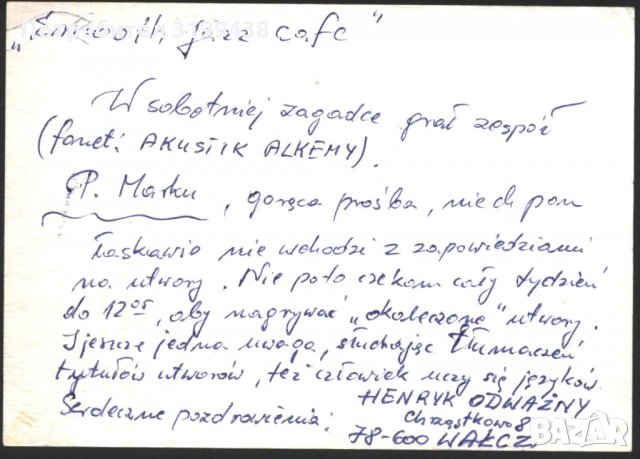 Потребител 3189438
„Smooth jazz cafe”
W sobotniej zagadce grał zespół
(fonet: AKUSTIK ALKEMY).
P. Marku, gorąca prośba, niech pan
łaskawie nie wchodzi z zapowiedziami
na utwory. Nie po to czekam cały tydzień
do 12⁰⁵, aby nagrywać „okaleczone” utwory.
I jeszcze jedna uwaga, słuchając tłumaczeń
tytułów utworów, też człowiek uczy się języków.
HENRYK ODWAŻNY
Serdeczne pozdrowienia:
Chrząstkowo 8
78-600 WAŁCZ
BAZAR